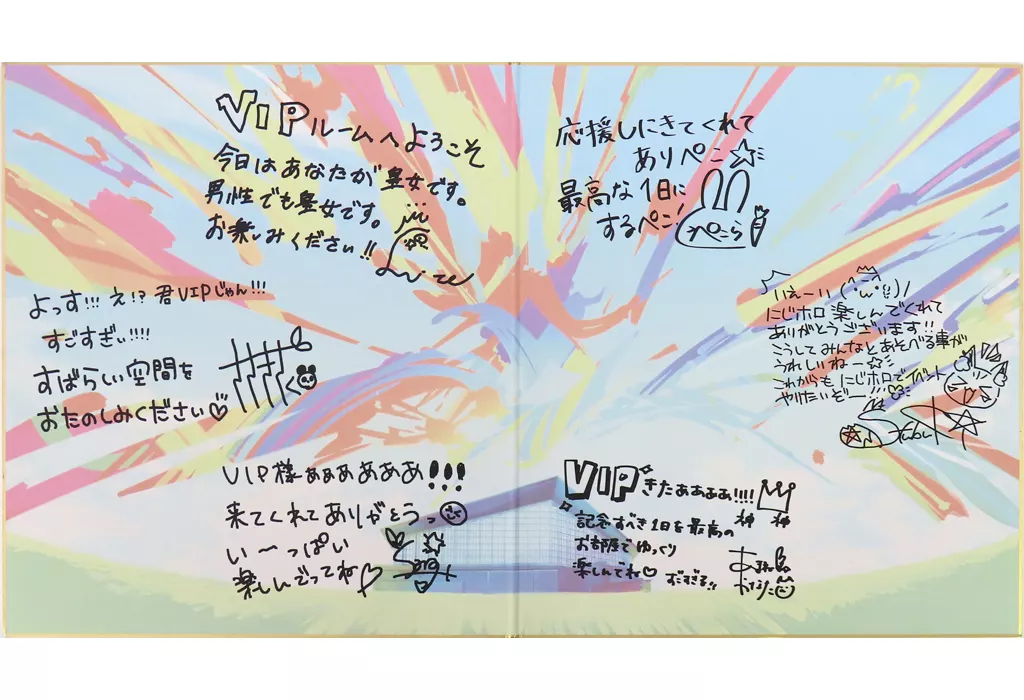 VIPルームへようこそ
今日はあなたが皇女です。
男性でも皇女です。
お楽しみください!!
応援しにきてくれて
ありペこ☆
最高な1日に
するペこ!
ぺこら
よっす!!! え!? 君VIPじゃん!!!
すごすぎぃ!!!!
すばらしい空間を
おたのしみください♡
いえーい(^・ω・^)/
にじホロ楽しんでくれて
ありがとうございます!!
こうしてみんなとあそべる事が
うれしいねー☆
これからもにじホロでイベント
やりたいぞー!!!
VIP様ぁぁぁぁぁぁ!!!
来てくれてありがとうっ
い〜っぱい
楽しんでってね♡
VIPきたぁぁぁぁ!!!!
神 神
記念すべき1日を最高の
お部屋でゆっくり
楽しんでね♡